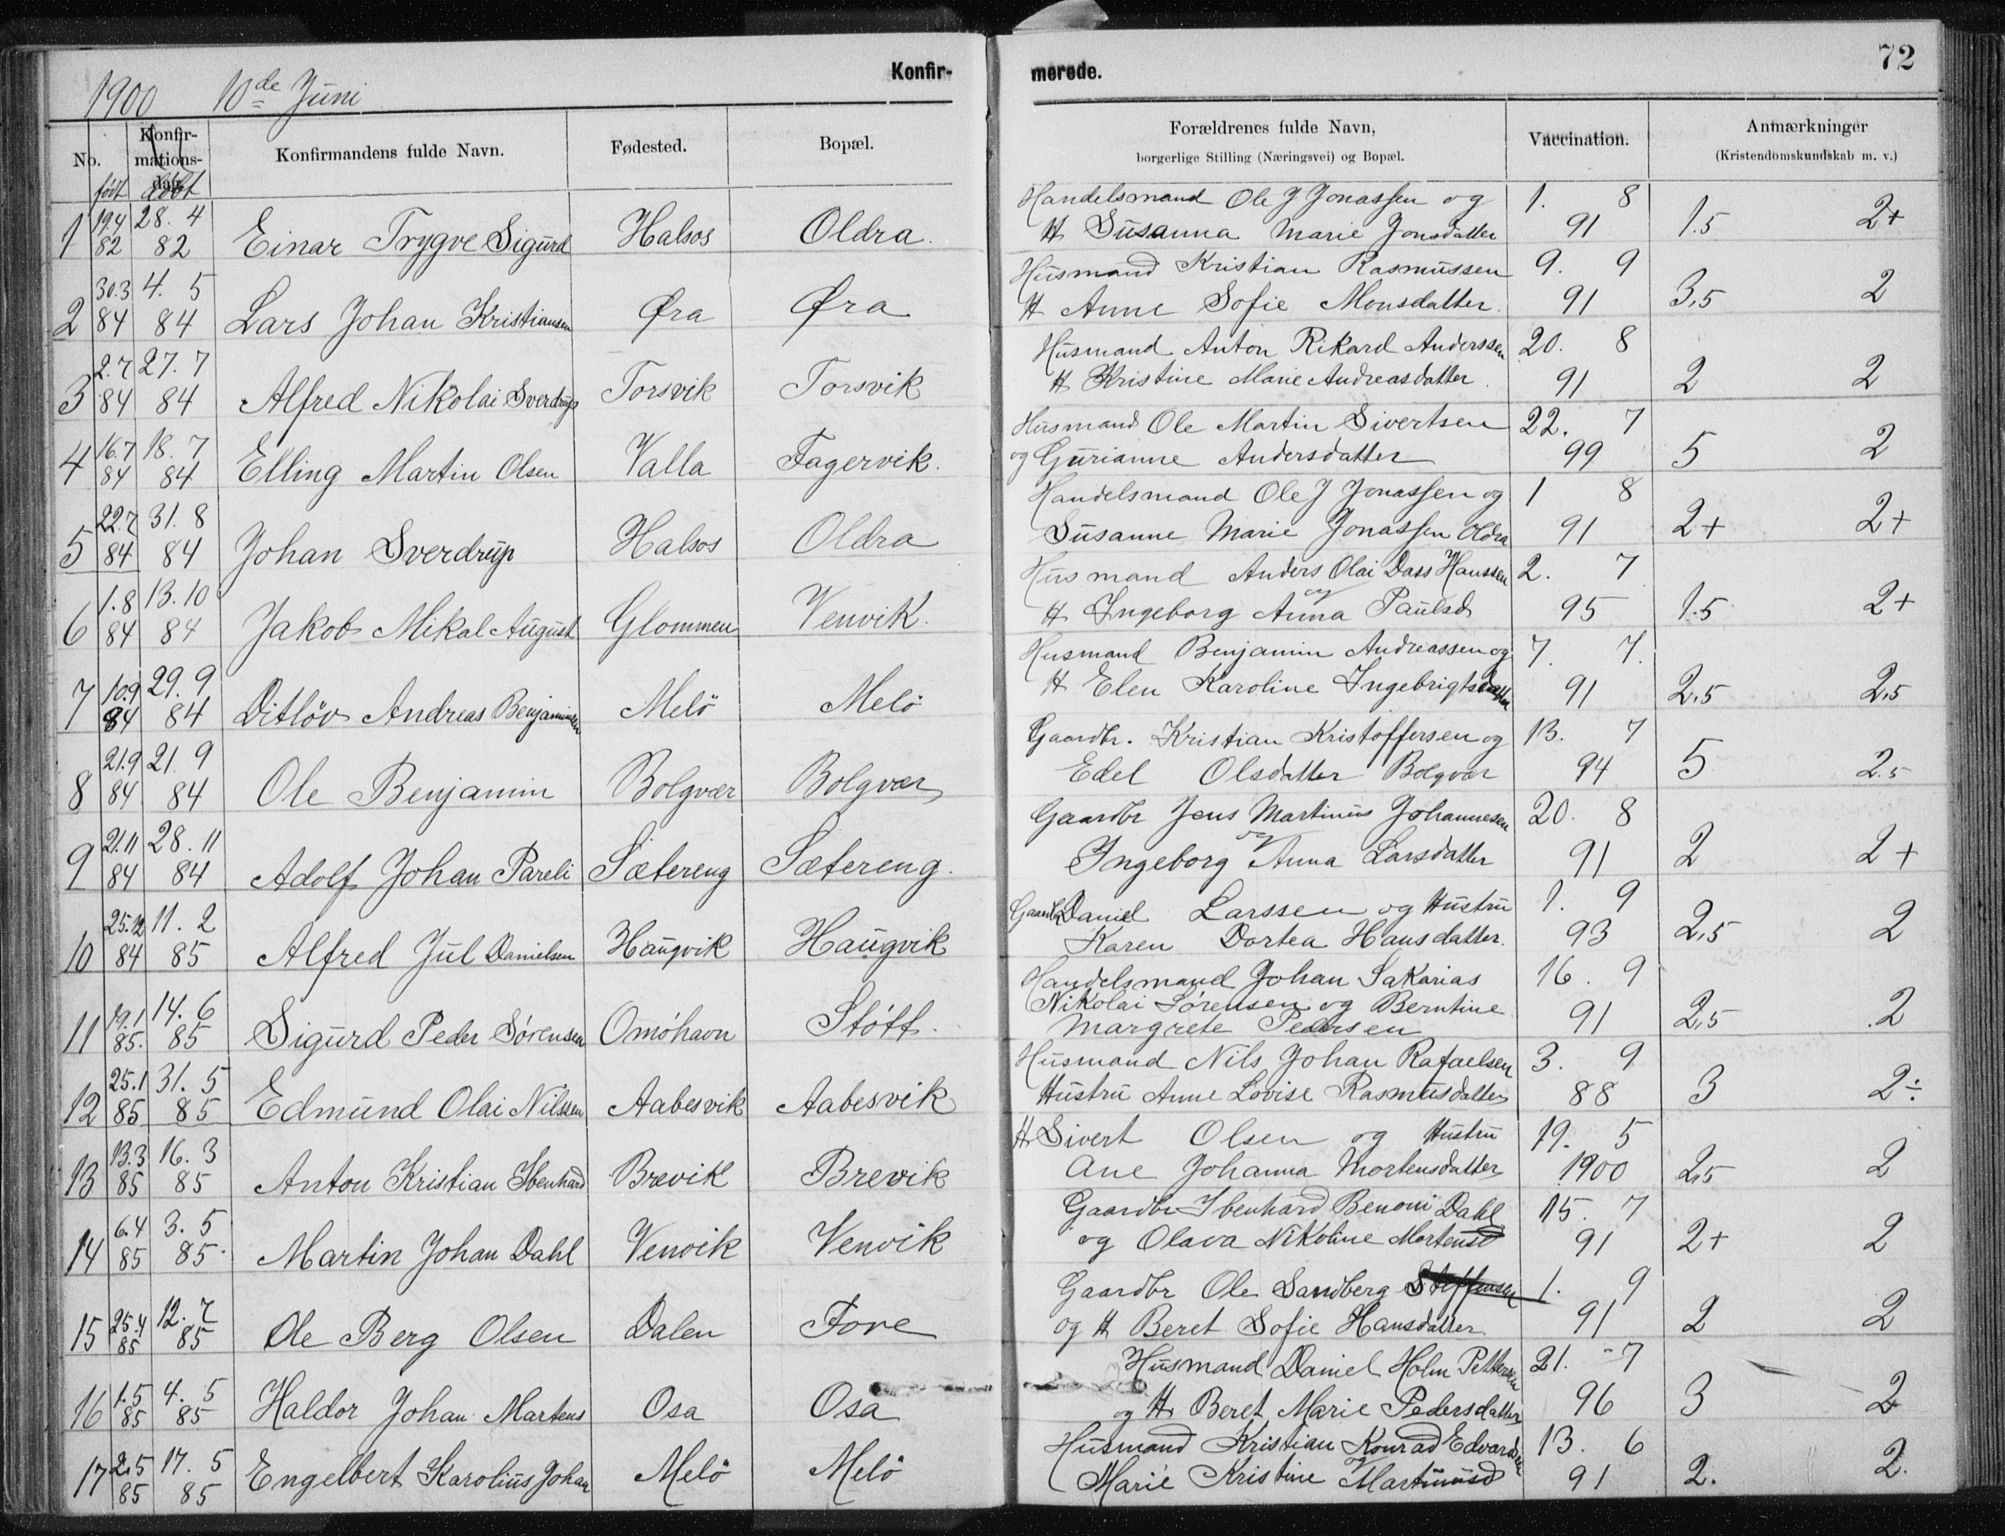 1900 10de Juni
Konfir-
merede.
72
No.
Konfir-
mations-
dag.
født døbt
Konfirmandens fulde Navn.
Fødested.
Bopæl.
Forældrenes fulde Navn,
borgerlige Stilling (Næringsvei) og Bopæl.
Vaccination.
Anmærkninger
(Kristendomskundskab m. v.)
19.4 28. 4 Handelsmand Ole J Jonassen og 1. 8
1 82 82 Einar Trygve Sigurd Halsos Oldra. H Susanna Marie Jonsdatter 91 1.5 2+
30.3 4. 5 Husmand Kristian Rasmussen 9. 9
2 84 84 Lars Johan Kristiansen Øra Øra H Anne Sofie Monsdatter. 91 3,5 2
2.7 27. 7 Husmand Anton Rikard Anderssen 20. 8
3 84 84 Alfred Nikolai Sverdrup Torsvik Torsvik H Kristine Marie Andreasdatter. 91 2 2
16.7 18. 7 Husmand Ole Martin Sivertsen 22. 7
4 84 84 Elling Martin Olsen Valla Fagervik. og Gurianne Andersdatter 99 5 2
22.7 31. 8 Handelsmand Ole J Jonassen og 1 8
5 84 84 Johan Sverdrup Halsos Oldra Susanne Marie Jonassen Oldra 91 2+ 2+
1.8 13. 10 Husmand Anders Olai Dass Hanssen 2. 7
6 84 84 Jakob Mikal August Glommen Venvik. og H Ingeborg Anna Paulsd 95 1.5 2+
10.9 29. 9 Husmand Benjamin Andreassen og 7. 7.
7 84 84 Ditløv Andreas Benjaminsen Melö Melö H Elen Karoline Ingebrigtsdatter 91 2,5 2,5
21.9 21. 9 Gaardbr. Kristian Kristoffersen og 13. 7
8 84 84 Ole Benjamin Bolgvær Bolgvær Edel Olsdatter Bolgvær 94 5 2.5
21.11 28. 11 Gaardbr Jens Martinus Johannesen 20. 8
9 84 84 Adolf Johan Pareli Sætereng Sætereng. og Ingeborg Anna Larsdatter 91 2 2+
25.12 11. 2 Gaardbr Daniel Larssen og Hustru 1. 9
10 84 85 Alfred Jul Danielsen Haugvik Haugvik Karen Dortea Hansdatter. 93 2,5 2
19.1 14. 6 Handelsmand Johan Sakarias 16. 9
11 85. 85 Sigurd Peder Sörensen Omöhavn Stött. Nikolai Sörensen og Berntine 91 2,5 2
Margrete Pedersen
25.1 31. 5 Husmand Nils Johan Rafaelsen 3. 9
12 85 85 Edmund Olai Nilssen Aabesvik Aabesvik Hustru Anne Lovise Rasmusdatter 88 3 2÷
13.3 16. 3 H Sivert Olsen og Hustru 19. 5
13 85 85 Anton Kristian Ibenhard Brevik Brevik Ane Johanna Mortensdatter 1900 2,5 2
6.4 3. 5 Gaardbr Ibenhard Benoni Dahl 15. 7
14 85 85. Martin Johan Dahl Venvik Venvik og Olava Nikoline Mortensd 91 2+ 2
25.4 12. 7 Gaardbr Ole Sandberg Steffensen 1. 9
15 85 85 Ole Berg Olsen Dalen Fore og H Beret Sofie Hansdatter. 91 2 2
1.5 4. 5 Husmand Daniel Holm Pettersen 21. 7
16 85 85 Haldor Johan Martens Osa Osa og H Beret Marie Pedersdatter 96 3 2
2.5 17. 5 Husmand Kristian Konrad Edvardsen 13. 6
17 85 85 Engelbert Karolius Johan Melö Melö og Marie Kristine Martinusd 91 2. 2.